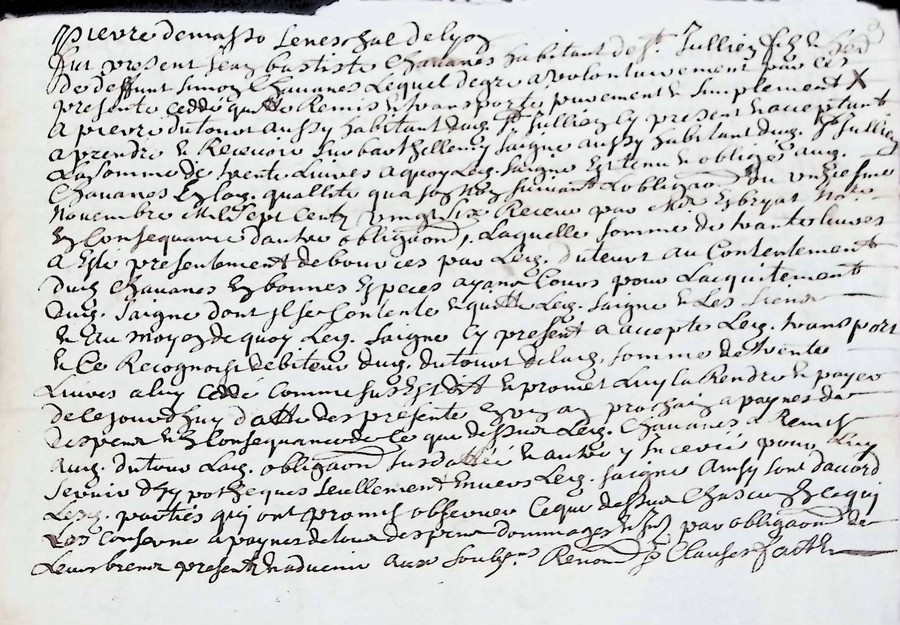 pierre demasso seneschal de lyon
fut present Jean baptiste Chavanes habitant de st. Jullien filz &
de deffunt simon Chavanes Lequel de gre a volontairement par ces
presente cedde quitte Remis & transporte purement & simplement X
a pierre dutour aussy habitant dud. st Jullien Cy present & acceptant
a prendre & Recevoir sur barthellemy saigne aussy habitant dud. st Jullien
La somme de trente Livres a quoy Led. saigne Est tenu & obligé aud.
Chavanes En lad. quallite suivant Lobligaon du unziesme
Novembre Mil sept Centz vingt six Receue par Me Esbryat
En Consequance dautre obligaon, Laquelle somme de trante livres
a Este presentement debourcés par Led. duteur au Contentement
dud. Chavanes En bonnes Especes ayant Cours pour Lacquitement
dud. saigne dont Il se Contente & quitte Led. saigne & Les siens
& Au moyen de quoy Led. saigne Cy present a accepte Led. transport
& Ce Recognoist debiteur dud. dutour de lad. somme de trente
Livres a luy Cedde Comme sus Est dit & promet Luy la Rendre & payer
de ce Jourdhuy datte des presente En un an prochain a paynes de
despens & En Consequance de Ce que dessus Led. Chavanes a Remis
aud. dutour Lad. obligaon susdattée & autre y Incerées pour Luy
servir dhypotheques seullement Envers Led. saigne Ainsy sont daccord
Lesd. parties qui ont promis observer Ce que dessus Chascun En ce qui
Les Conserne a paynes de tous despens dommages & par obligaon de
Leurs biens present & advenir aux Renon Clauses faitt